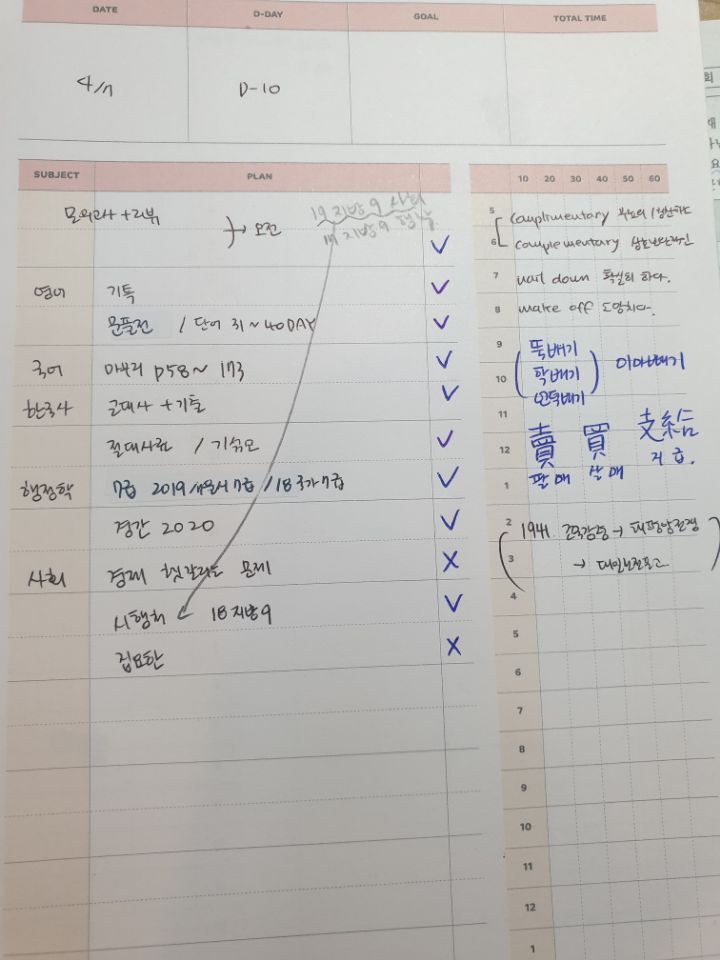 DATE D-DAY GOAL TOTAL TIME
4/7 D-10
SUBJECT PLAN
모의고사 + 리뷰 → 오전
19 지방 9 사회
19 지방 9 행
영어 기특
문풀전 / 단어 31 ~ 40 DAY
국어 마무리 p58 ~ 173
한국사 근대사 + 기특
절대사료 / 기싱모
행정학 7급 2019 서울시 7급 / 18 국가 7급
경간 2020
사회 경제 헷갈리는 문제
시행처 18 지방 9
집요한
10 20 30 40 50 60
5 complimentary 무료의 / 칭찬하는
6 complementary 상호보완적인
7 nail down 확실히 하다.
8 make off 도망치다.
9 뚝배기
10 학배기 이마빼기
언덕배기
11
12 賣 買 支給
1 팔 매 살 매 지급.
2 1941. 진주만 → 태평양전쟁
3 → 대일선전포고
4
5
6
7
8
9
10
11
12
1